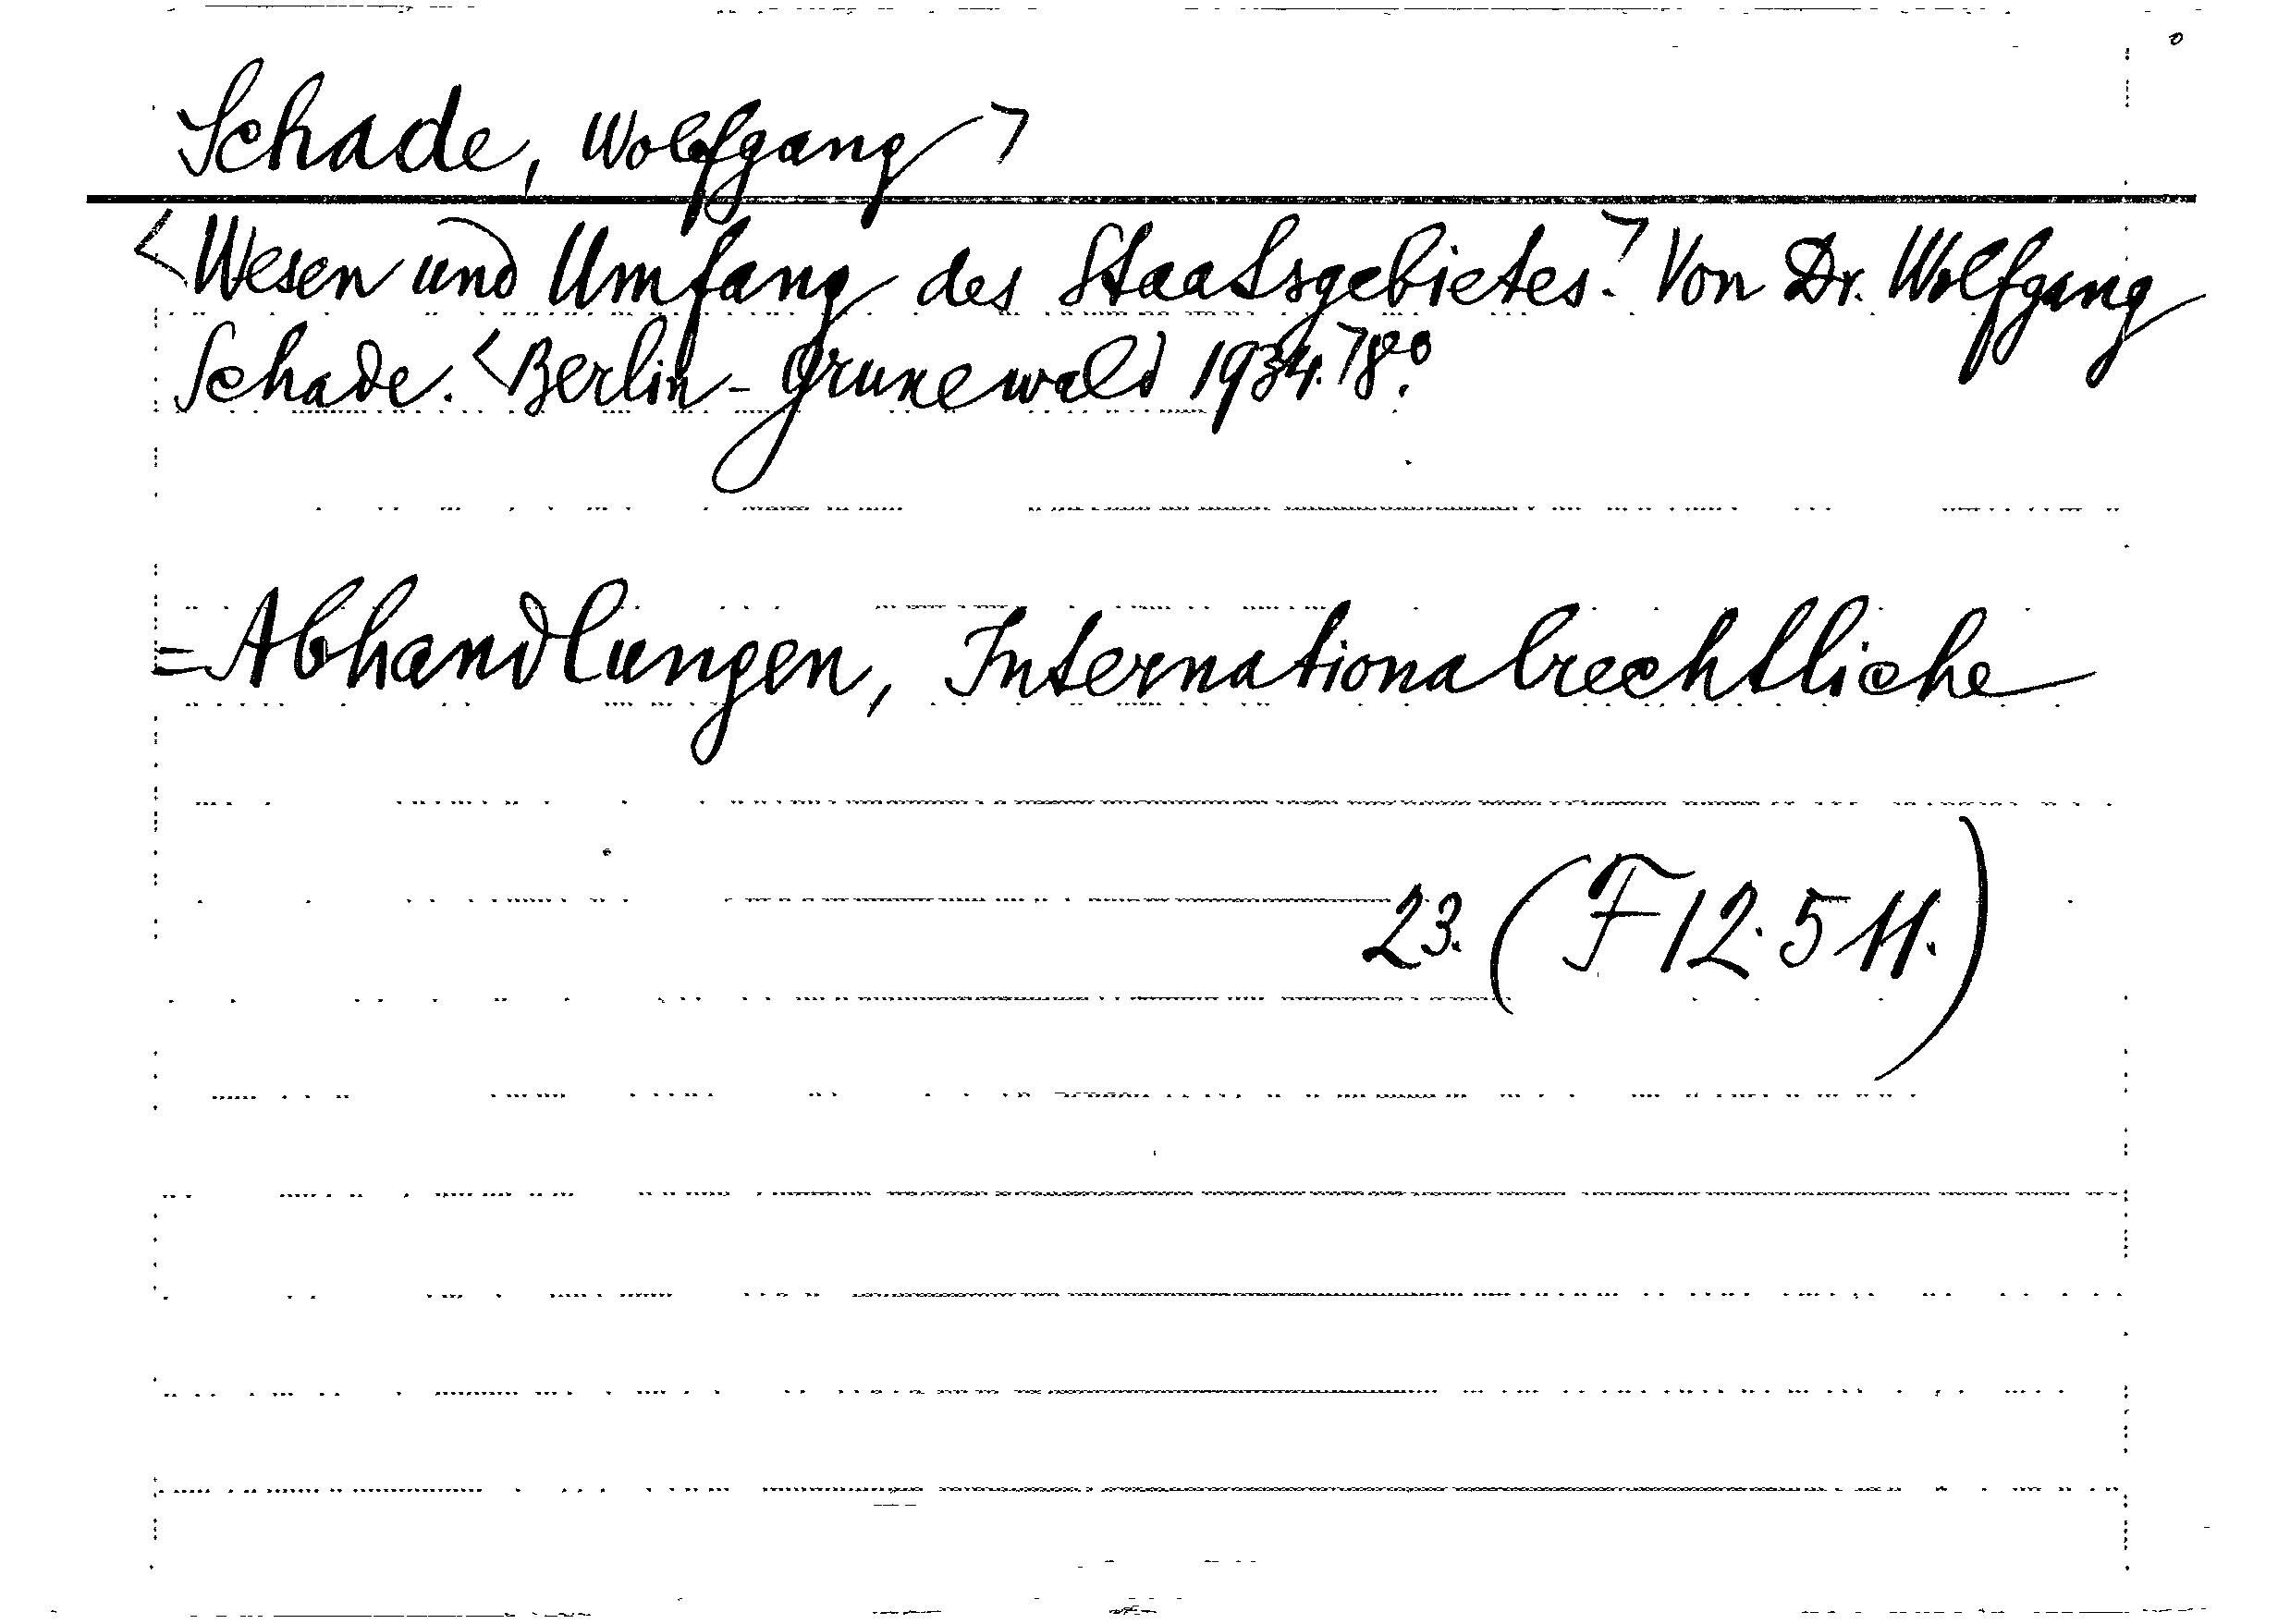 Schade, Wolfgang >
<Wesen und Umfang des Staatsgebietes.> Von Dr. Wolfgang
Schade. <Berlin-Grunewald 1934.> 8°.
= Abhandlungen, Internationalrechtliche
23. (F12.511.)